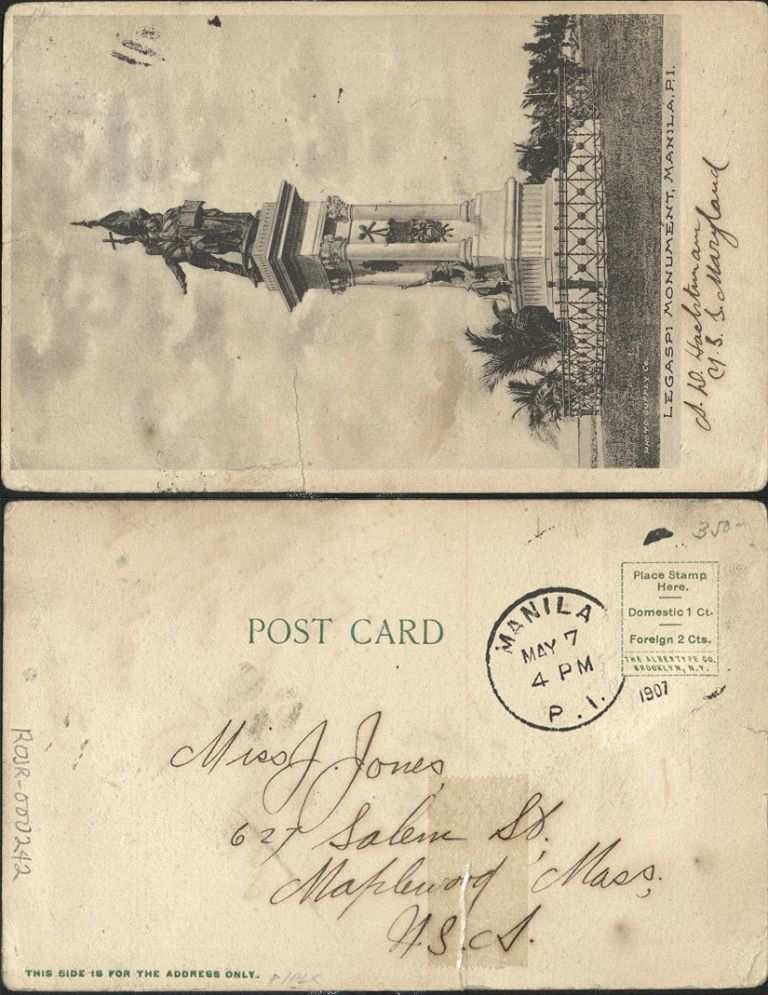 LEGASPI MONUMENT, MANILA, P.I.
PHOTO SUPPLY CO.
U. S. S. Maryland
350-
Place Stamp
Here.
Domestic 1 Ct.
Foreign 2 Cts.
THE ALBERTYPE CO.
BROOKLYN, N.Y.
POST CARD
MANILA
MAY 7
4 PM
P.I.
1907
Miss J. Jones,
627 Salem St.
Maplewood, Mass.
U.S.A.
ROJR-000242
THIS SIDE IS FOR THE ADDRESS ONLY.